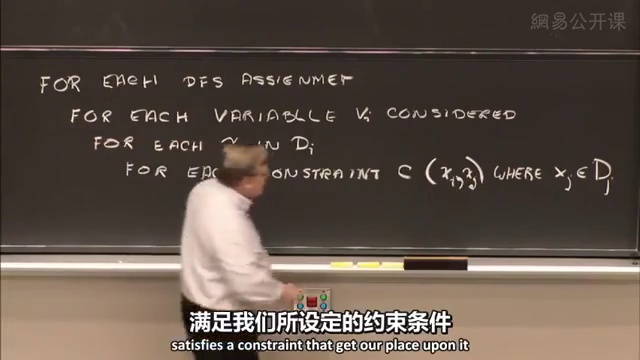 網易公开课
FOR EACH DFS ASSIGNMET
FOR EACH VARIABLLE Vi CONSIDERED
FOR EACH IN Di
FOR CONSTRAINT C (xi, xj) WHERE xj ∈ Dj
满足我们所设定的约束条件
satisfies a constraint that get our place upon it